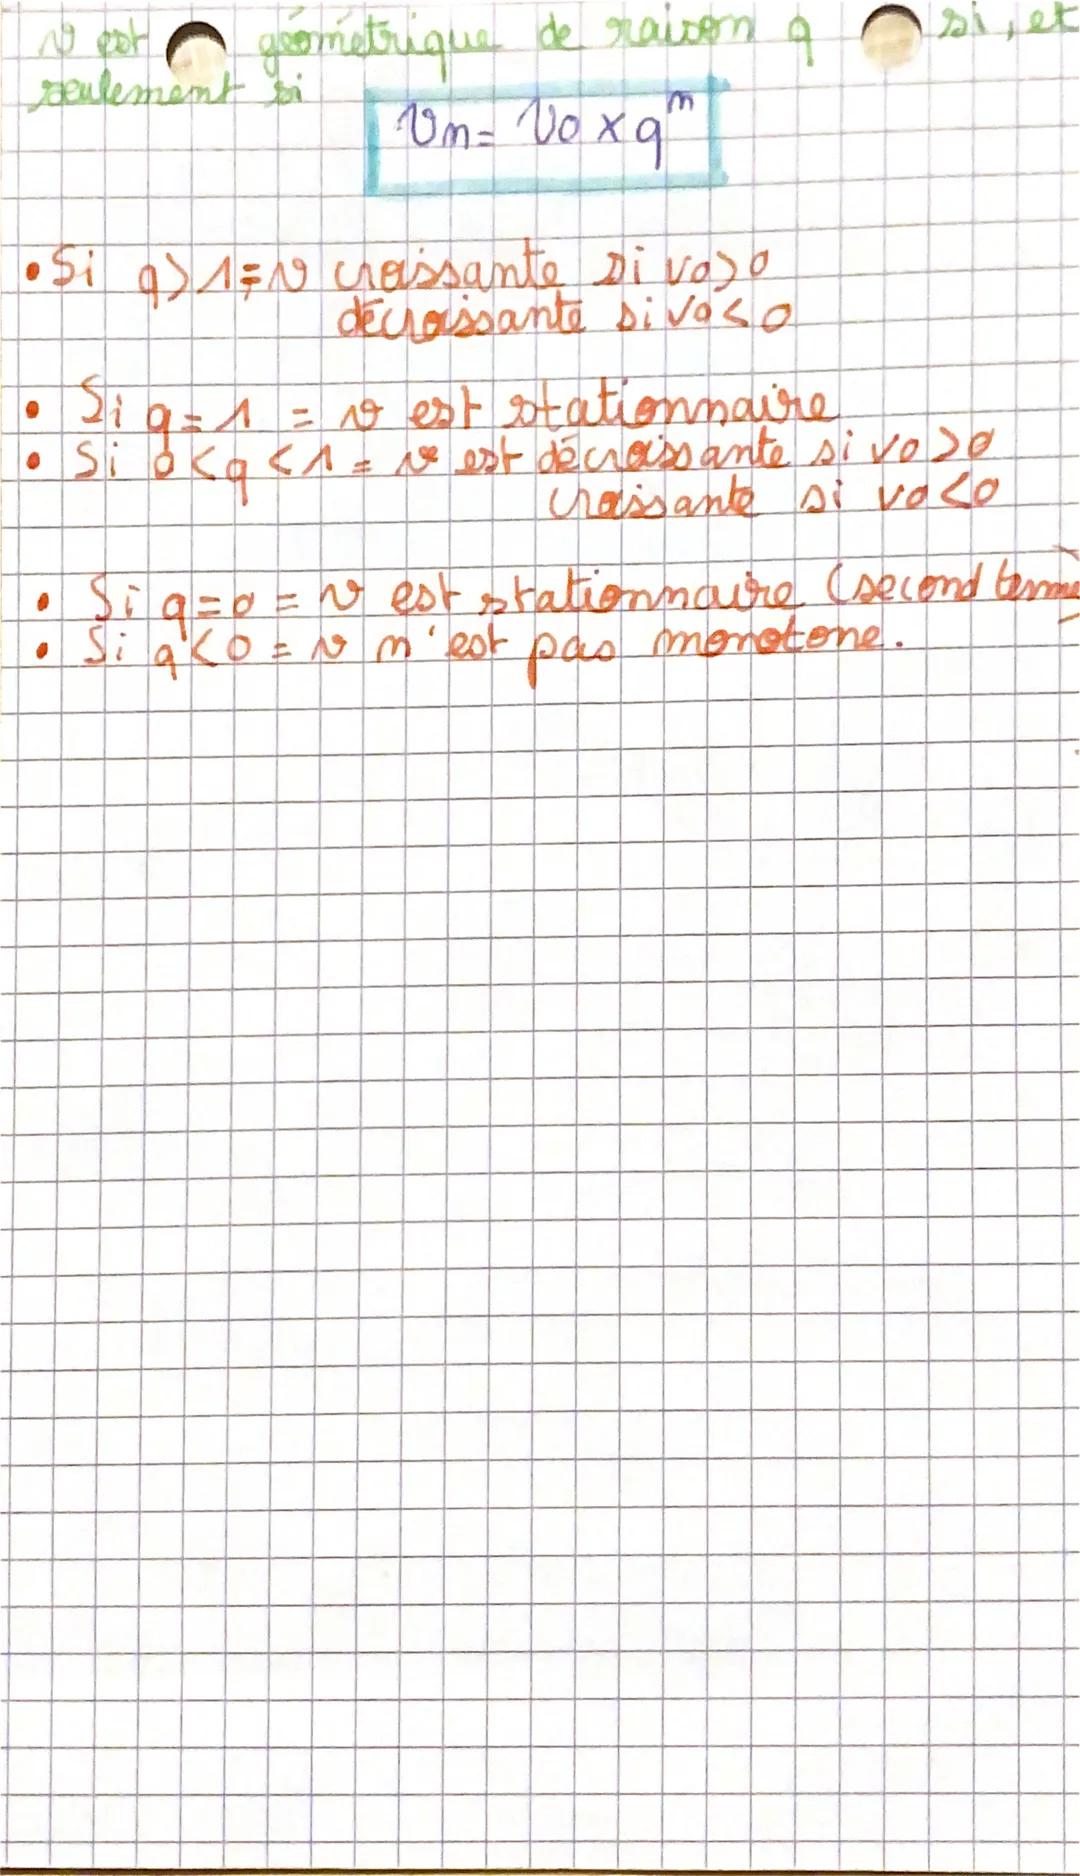 v est géométrique de raison q si, et
seulement si
Vn = V0 × q^n
• Si q > 1 = v croissante si v0 > 0
décroissante si v0 < 0
• Si q = 1 = v est stationnaire
• Si 0 < q < 1 = v est décroissante si v0 > 0
croissante si v0 < 0
• Si q = 0 = v est stationnaire (second terme)
• Si q < 0 = v n'est pas monotone.